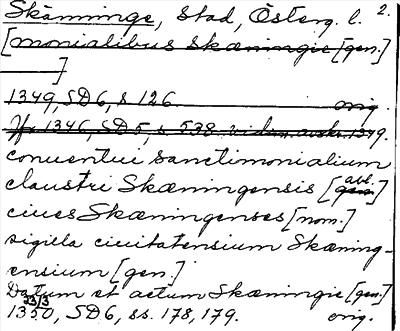 Skänninge, stad, Österg. l. 2.
[monialibus Skæningie [gen.]
]
1349, SD6, s 126 orig.
Jfr 1346, SD5, s 538 vidim. avskr. 1349.
conuentui sanctimonialium
claustri Skæningensis [gen. abl.]
ciues Skæningenses [nom.]
sigilla ciuitatensium Skæning-
ensium [gen.]
Datum et actum Skæningie [gen.]
33/3
1350, SD6, ss. 178, 179. orig.